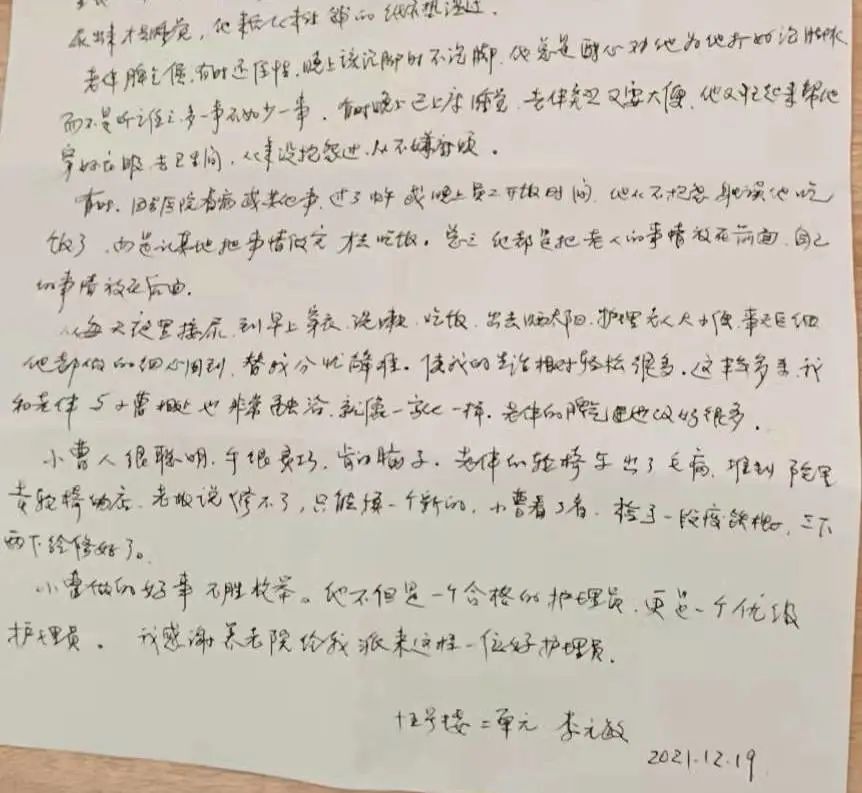 尿出来才去睡觉，他来后从来铺的纸不想湿过。
老伴脾气倔，有时还任性，晚上该泡脚时不泡脚，他总是耐心劝他为他打好泡脚水
而不是听之任之多一事不如少一事。有时晚上已上床睡觉，老伴突然又要大便，他又起来帮他
穿好衣服去卫生间，从来没抱怨过，从不嫌麻烦。
有时，因去医院看病或其他事，过了中午或晚上员工开饭时间，他从不抱怨耽误他吃
饭了，而是认真地把事情做完才去吃饭。总之他都是把老人的事情放在前面，自己
的事情放在后面。
从每天夜里接尿，到早上穿衣、洗漱、吃饭、出去晒太阳、护理老人大小便，事无巨细
他都做的细心周到，替我分忧解难。使我的生活相对轻松很多。这半年多来，我
和老伴与小曹相处也非常融洽，就像一家人一样。老伴的脾气也改好很多。
小曹人很聪明，手很灵巧，肯动脑子。老伴的轮椅车出了毛病，推到院里
卖轮椅的店，老板说修不了，只能换一个新的，小曹看了看，捡了一段废铁棍，三下
两下给修好了。
小曹做的好事不胜枚举。他不但是一个合格的护理员，更是一个优级
护理员。我感谢养老院给我派来这样一位好护理员。
十五号楼二单元 李元敏
2021.12.19